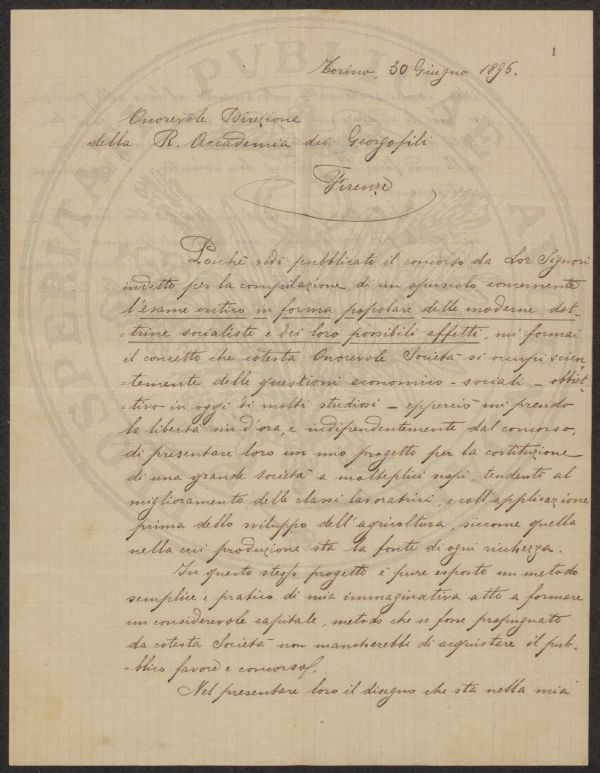 1
Torino, 30 Giugno 1896.
Onorevole Direzione
della R. Accademia dei Georgofili
Firenze
Poichè vidi pubblicato il concorso da Lor Signori
indetto per la compilazione di un opuscolo concernente
l'esame critico in forma popolare delle moderne dot-
-trine socialiste e dei loro possibili effetti, mi formai
il concetto che cotesta Onorevole Società si occupi
-temente delle questioni economico-sociali - obbiet-
-tivo in oggi di molti studiosi - epperciò mi prendo
la libertà sin d'ora, e indipendentemente dal concorso,
di presentare loro un mio progetto per la costituzione
di una grande società a molteplici scopi, tendenti al
miglioramento delle classi lavoratrici, e coll'applicazione
prima dello sviluppo dell'agricoltura, siccome quella
nella cui produzione sta la fonte di ogni ricchezza.
In questo stesso progetto è pure esposto un metodo
semplice e pratico di mia immaginativa atto a formare
un considerevole capitale, metodo che se fosse propugnato
da cotesta Società non mancherebbe di acquistare il pub-
-blico favore e concorso.
Nel presentare loro il disegno che sta nella mia